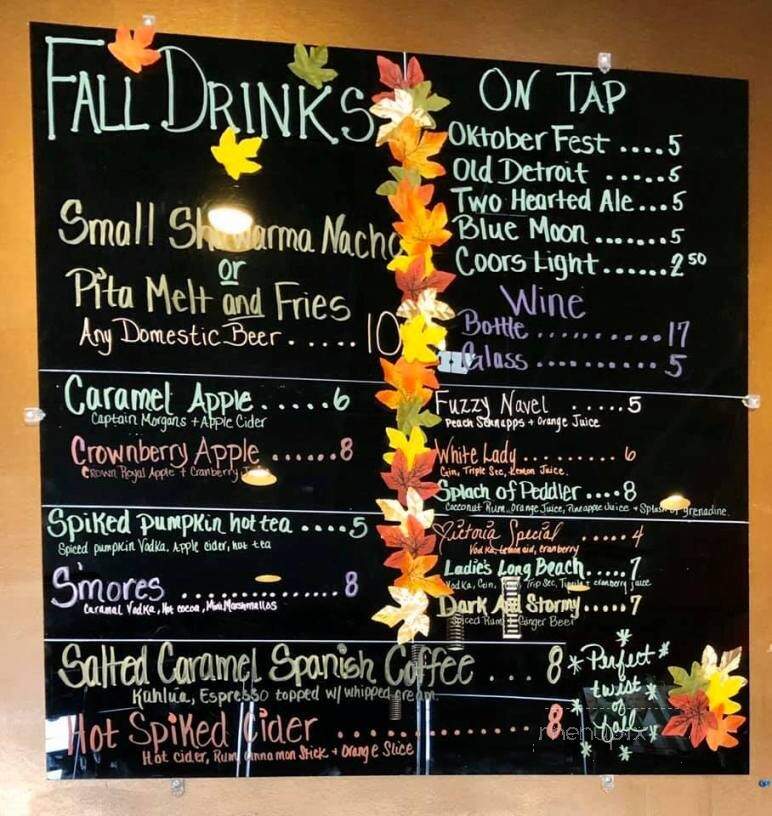 FALL DRINKS
Small Shawarma Nacho
or
Pita Melt and Fries
Any Domestic Beer ...... 10
Caramel Apple ...... 6
Captain Morgans + Apple Cider
Crownberry Apple ....... 8
Crown Royal Apple + Cranberry
Spiked Pumpkin hot tea .... 5
Spiced pumpkin Vodka, Apple cider, hot tea
S'mores .............. 8
Caramel Vodka, Hot cocoa, Mini Marshmallos
ON TAP
Oktober Fest .... 5
Old Detroit ..... 5
Two Hearted Ale... 5
Blue Moon ....... 5
Coors Light...... 2 50
Wine
Bottle .......... 17
Glass .......... 5
Fuzzy Navel ..... 5
Peach Schnapps + Orange Juice
White Lady ........ 6
Gin, Triple Sec, Lemon Juice.
Splach of Peddler .... 8
Coconut Rum, Orange Juice, Pineapple Juice + Splash of grenadine.
Victoria Special ..... 4
Vodka, Lemon aid, cranberry
Ladie's Long Beach..... 7
Vodka, Gin, Trip Sec, Tequila + cranberry juice
Dark And Stormy..... 7
Spiced Rum + Ginger Beer
Salted Caramel Spanish Coffee ... 8
Kahlua, Espresso topped w/ whipped cream
Hot Spiked Cider ............... 8
Hot cider, Rum, Cinnamon Stick + Orange Slice
Perfect
twist
of
fall
menupix